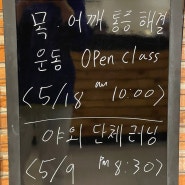 목 어깨 통증 해결
운동 Open class
<5/18 am 10:00>
야외 단체 러닝
<5/9 pm 8:30>